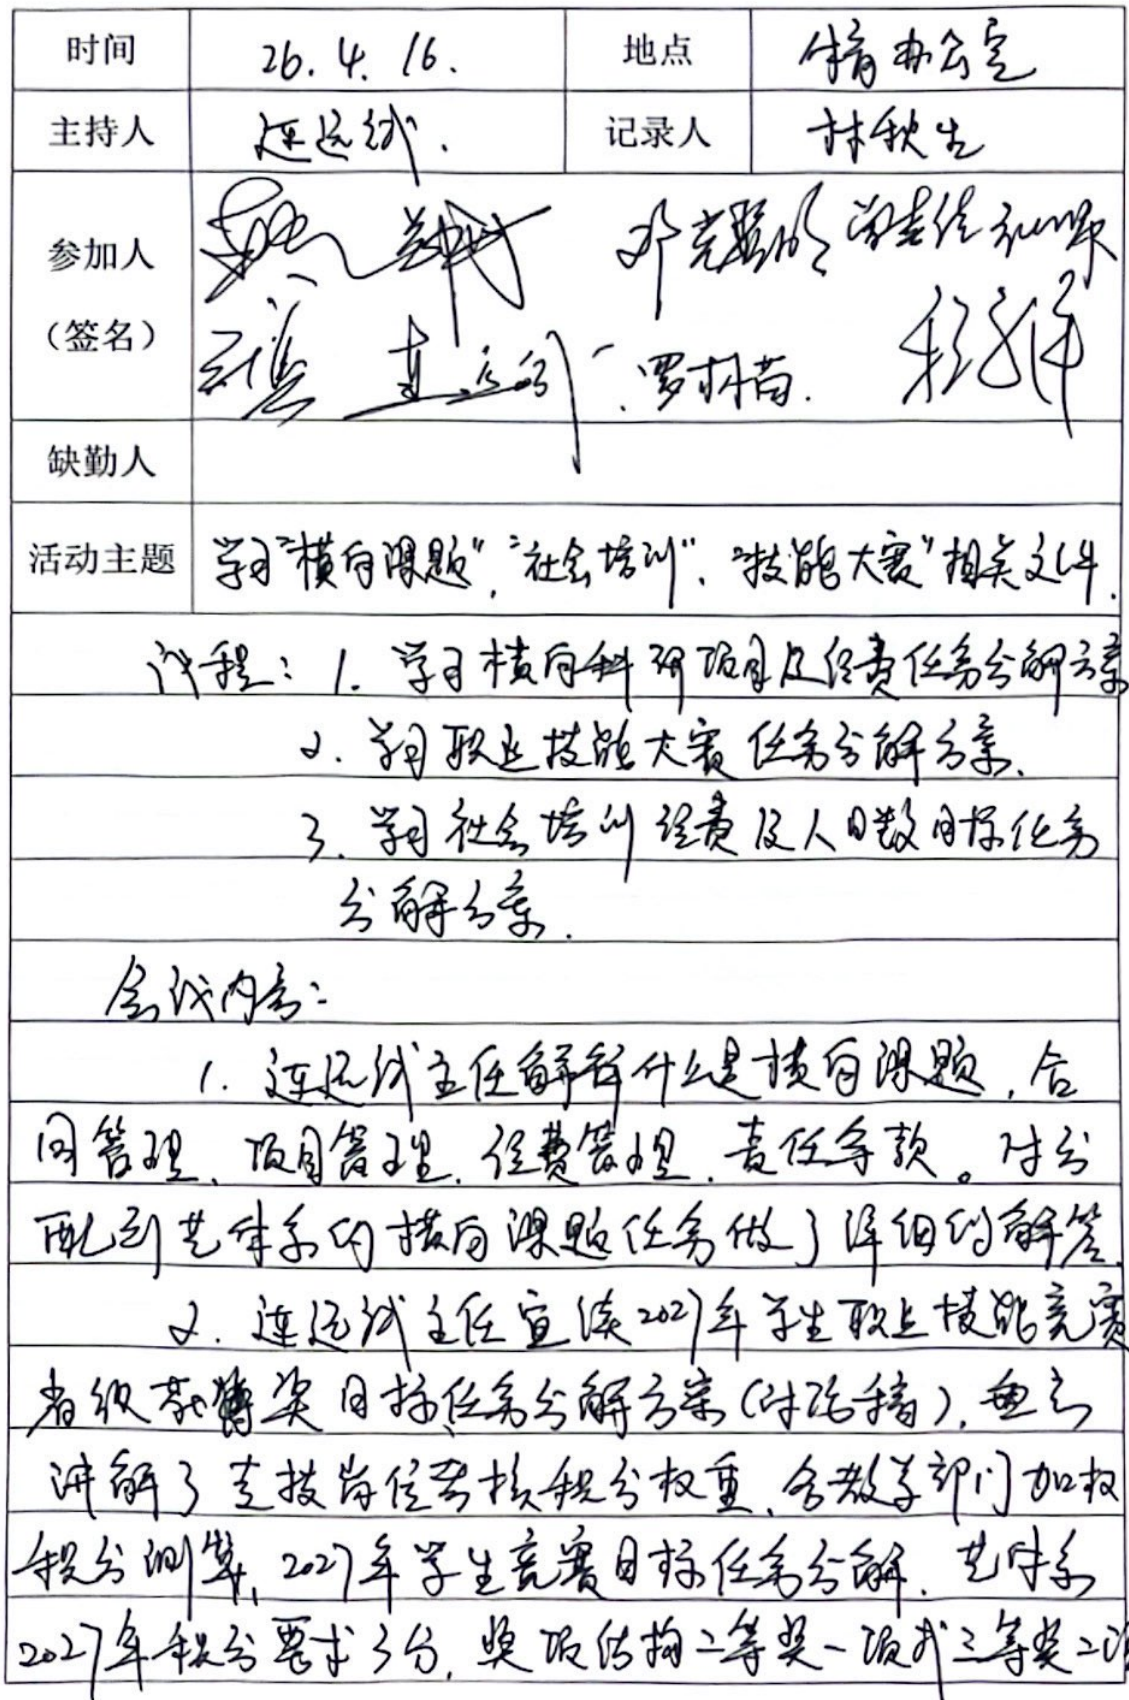 时间 26.4.16. 地点 体育办公室
主持人 连远斌. 记录人 林秋生
参加人
（签名）
罗林苗.
缺勤人
活动主题 学习"横向课题","社会培训"、"技能大赛"相关文件.
议程：1. 学习横向科研项目及经费任务分解方案
2. 学习职业技能大赛任务分解方案.
3. 学习社会培训经费及人日数目标任务
分解方案.
会议内容：
1. 连远斌主任解释什么是横向课题，合
同管理、项目管理、经费管理、责任条款。对分
配到艺体系的横向课题任务做了详细的解答.
2. 连远斌主任宣读2027年学生职业技能竞赛
省级获奖目标任务分解方案(讨论稿),重点
讲解了专技岗位考核积分权重、各教学部门加权
积分测算、2027年学生竞赛目标任务分解、艺体系
2027年积分要求3分,奖项结构二等奖一项或三等奖二项